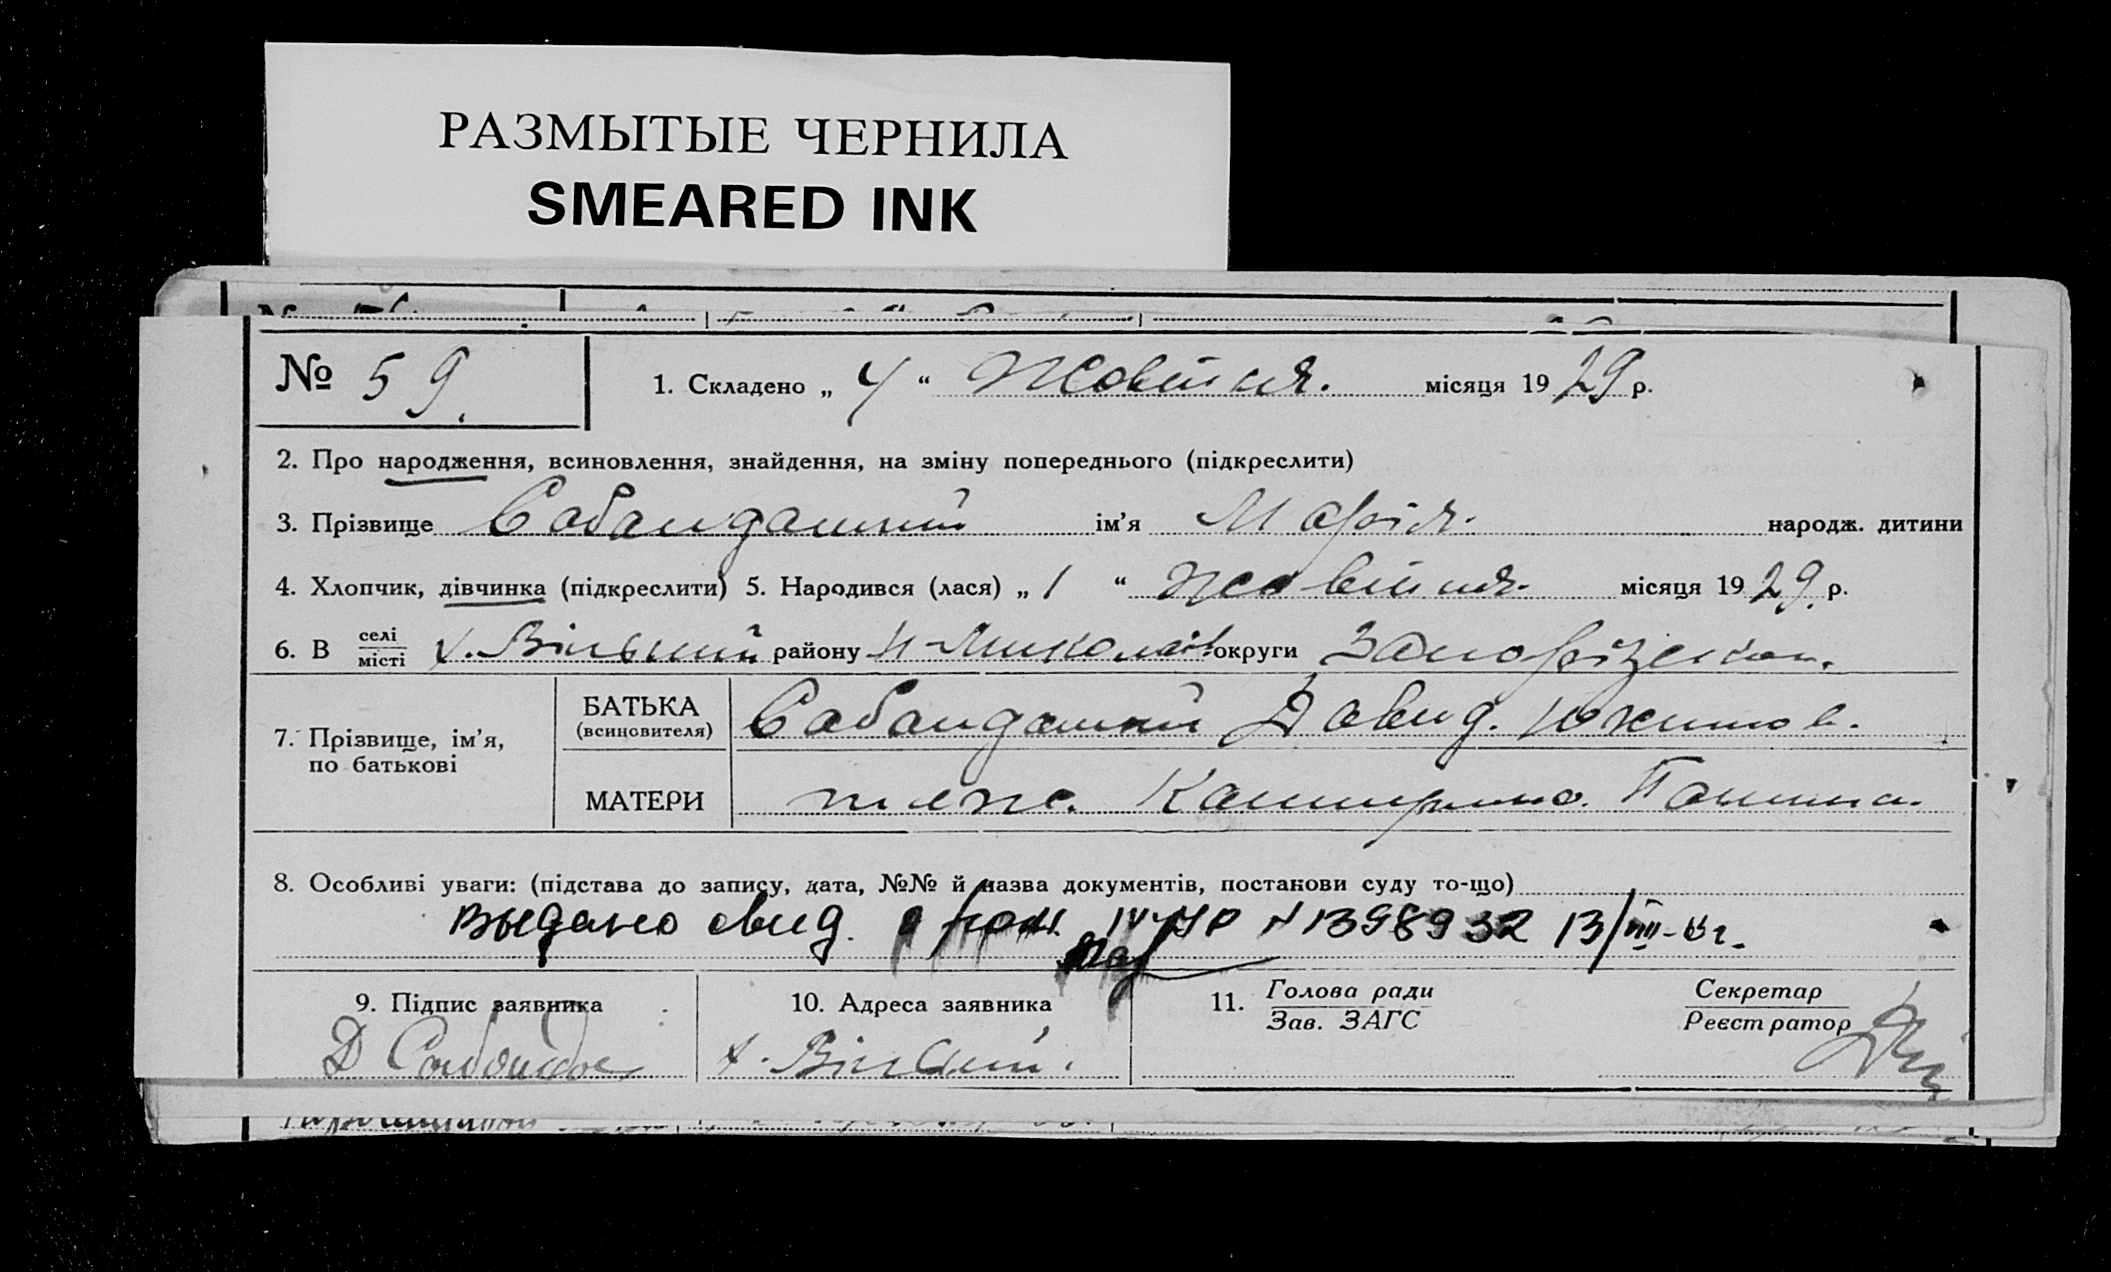 РАЗМЫТЫЕ ЧЕРНИЛА
SMEARED INK
№ 59. 1. Складено „ 4 “ Жовтня. місяця 1929 р.
2. Про народження, всиновлення, знайдення, на зміну попереднього (підкреслити)
3. Прізвище Сабандаший ім’я Марія. народж. дитини
4. Хлопчик, дівчинка (підкреслити) 5. Народився (лася) „ 1 “ Жовтня. місяця 1929 р.
6. В селі/місті х. Вільний району Н-Миколаїв. округи Запоріз
7. Прізвище, ім’я, по батькові
БАТЬКА (всиновителя) Сабандаший Давид.
МАТЕРИ теж. Катерина.
8. Особливі уваги: (підстава до запису, дата, №№ й назва документів, постанови суду то-що)
Выдано свид. о рож. N 1398932 13/III
9. Підпис заявника
10. Адреса заявника
11. Голова ради / Зав. ЗАГС
Секретар / Реєстратор
Д Сабандо
х. Вільний.